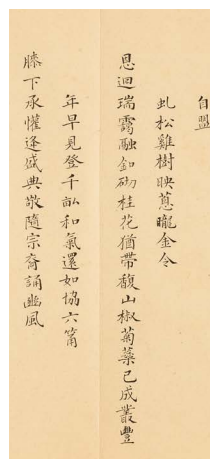 自盟
虬松雞樹映蔥曨金令
恩迴瑞靄融釦砌桂花猶帶馥山椒菊蘂已成叢豐
年早見登千畝和氣還如協六筩
膝下承懽逢盛典敬隨宗裔誦豳風